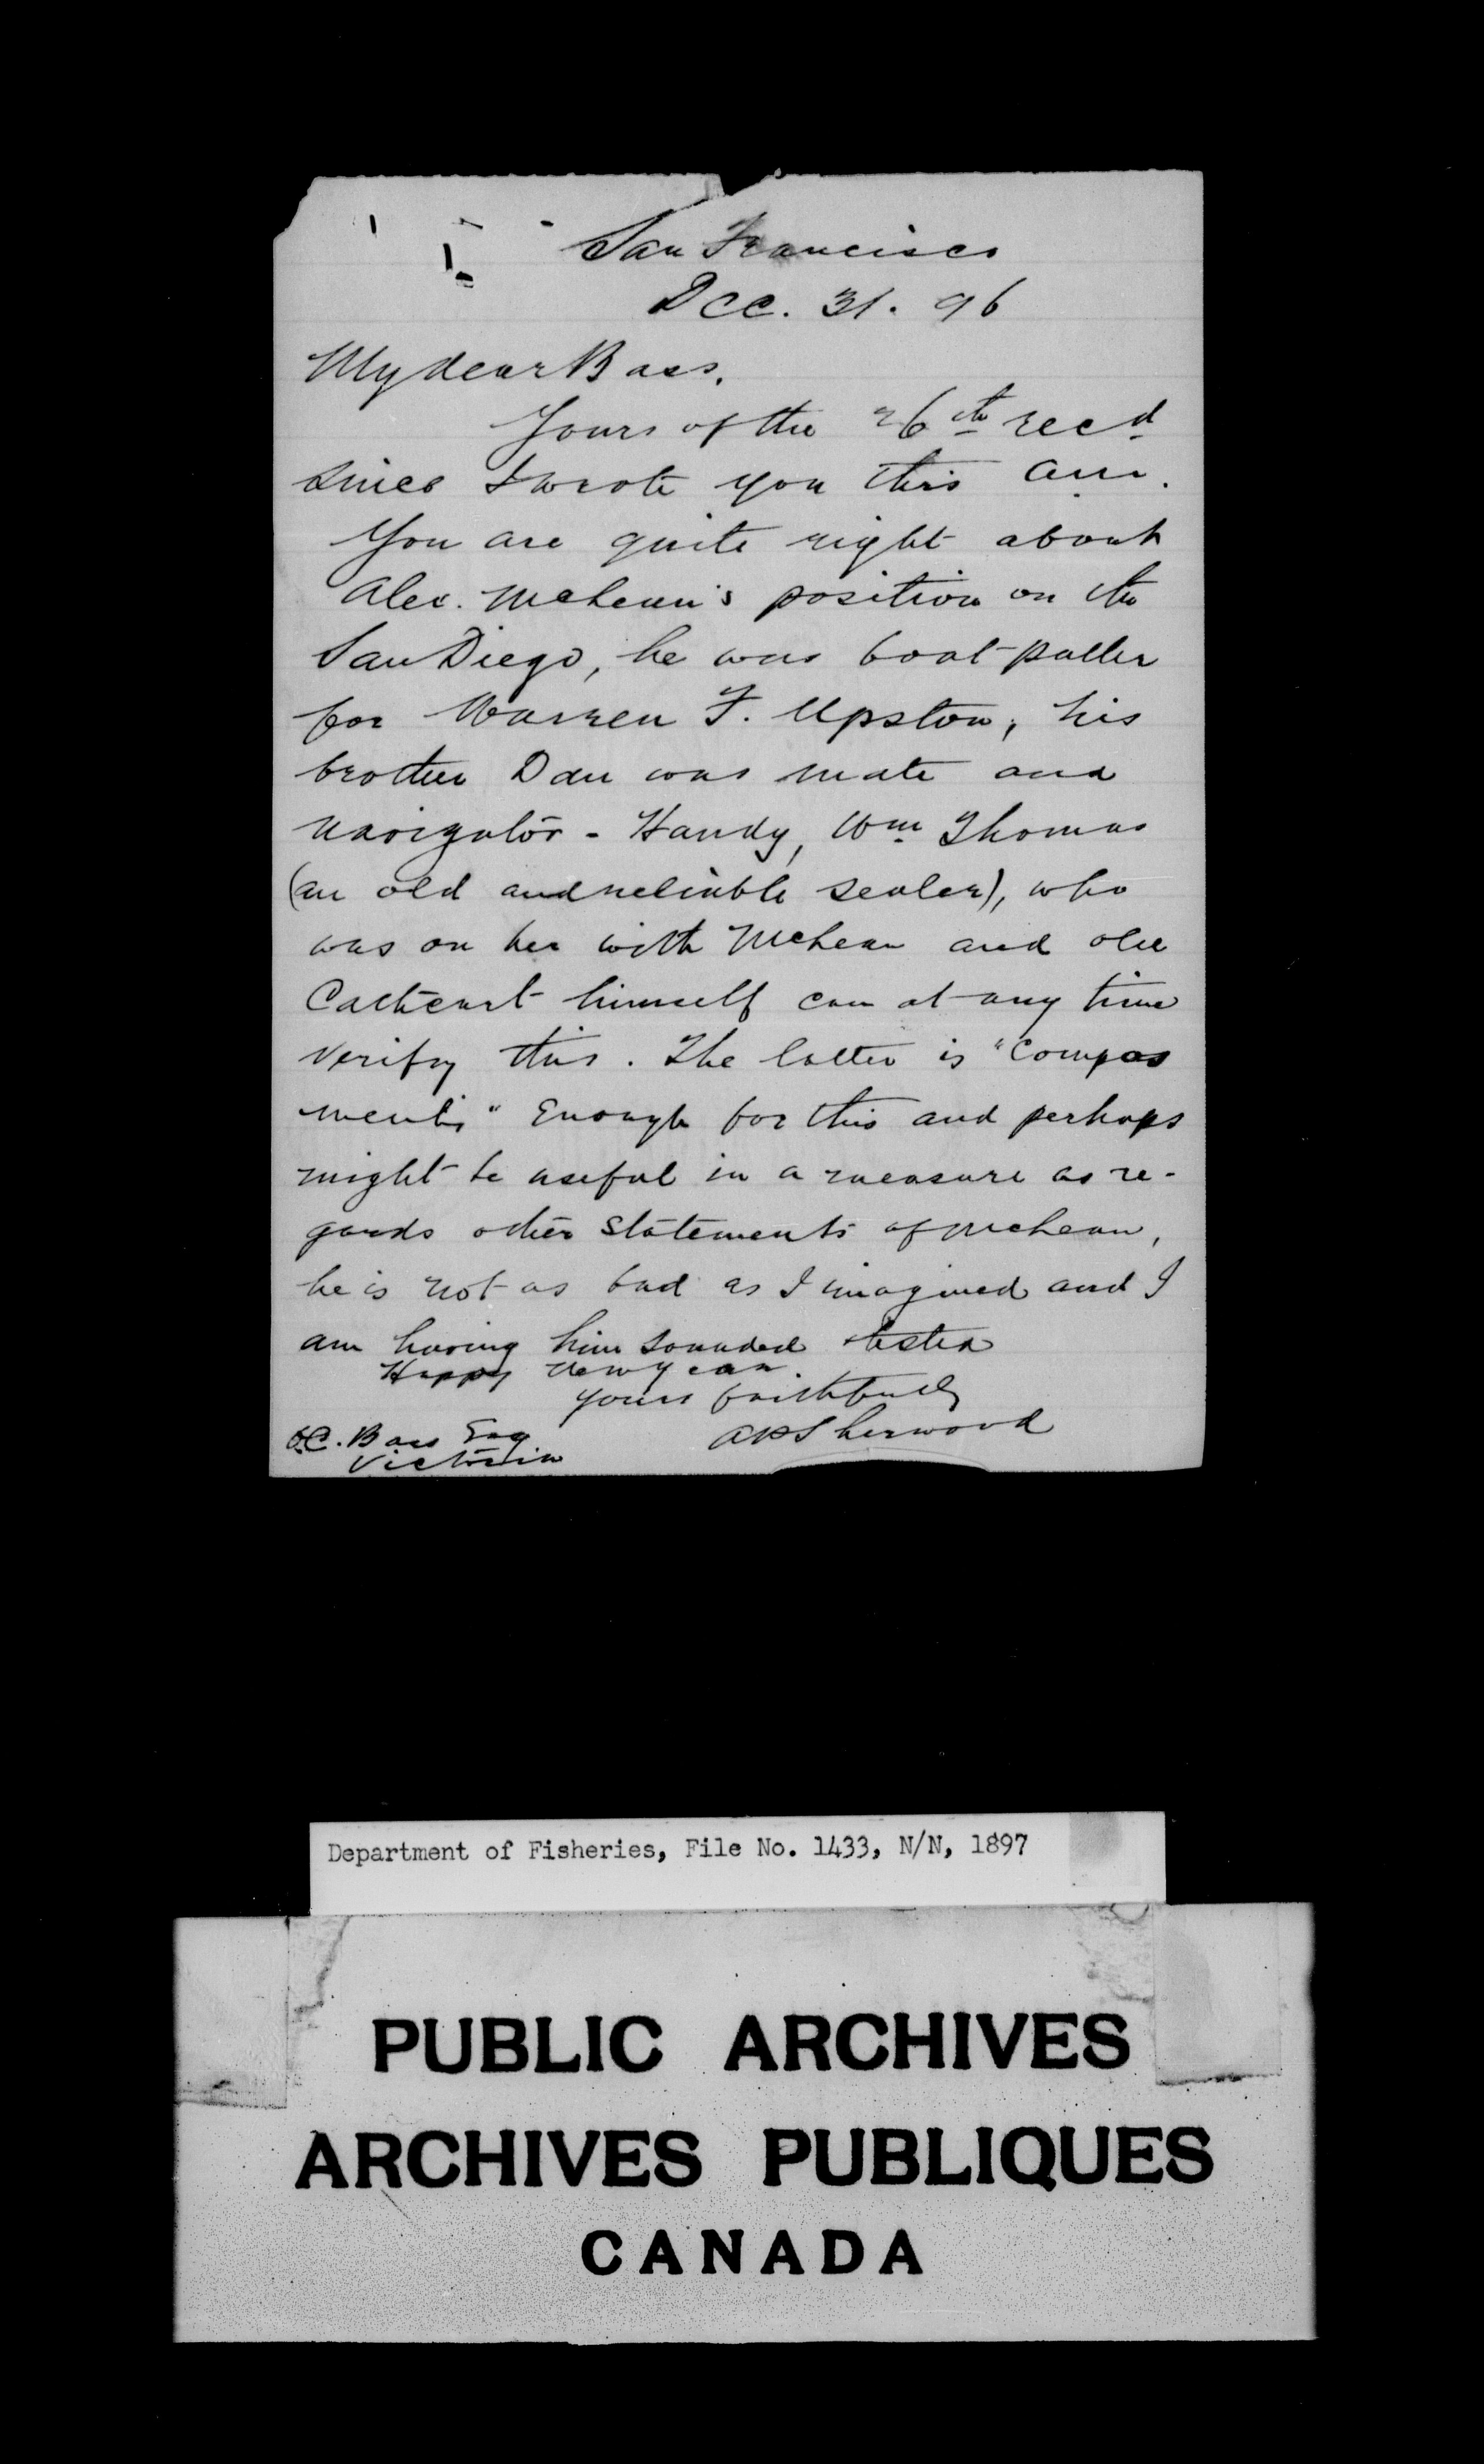 San Francisco
Dec. 31. 96
My dear Bass,
Yours of the 26th recd
since I wrote you this am.
You are quite right about
Alex. McLean's position on the
San Diego, he was boat-puller
for Warren F. Upston, his
brother Dan was mate and
navigator - Handy, Wm Thomas
(an old and reliable sealer), who
was on her with McLean and old
Cathcart himself can at any time
verify this. The latter is "Compos
mentis" enough for this and perhaps
might be useful in a measure as re-
gards other statements of McLean,
he is not as bad as I imagined and I
am having him sounded & tested
Happy New year.
Yours faithfully
APSherwood
O.C. Bass Esq
Victoria
Department of Fisheries, File No. 1433, N/N, 1897
PUBLIC ARCHIVES
ARCHIVES PUBLIQUES
CANADA